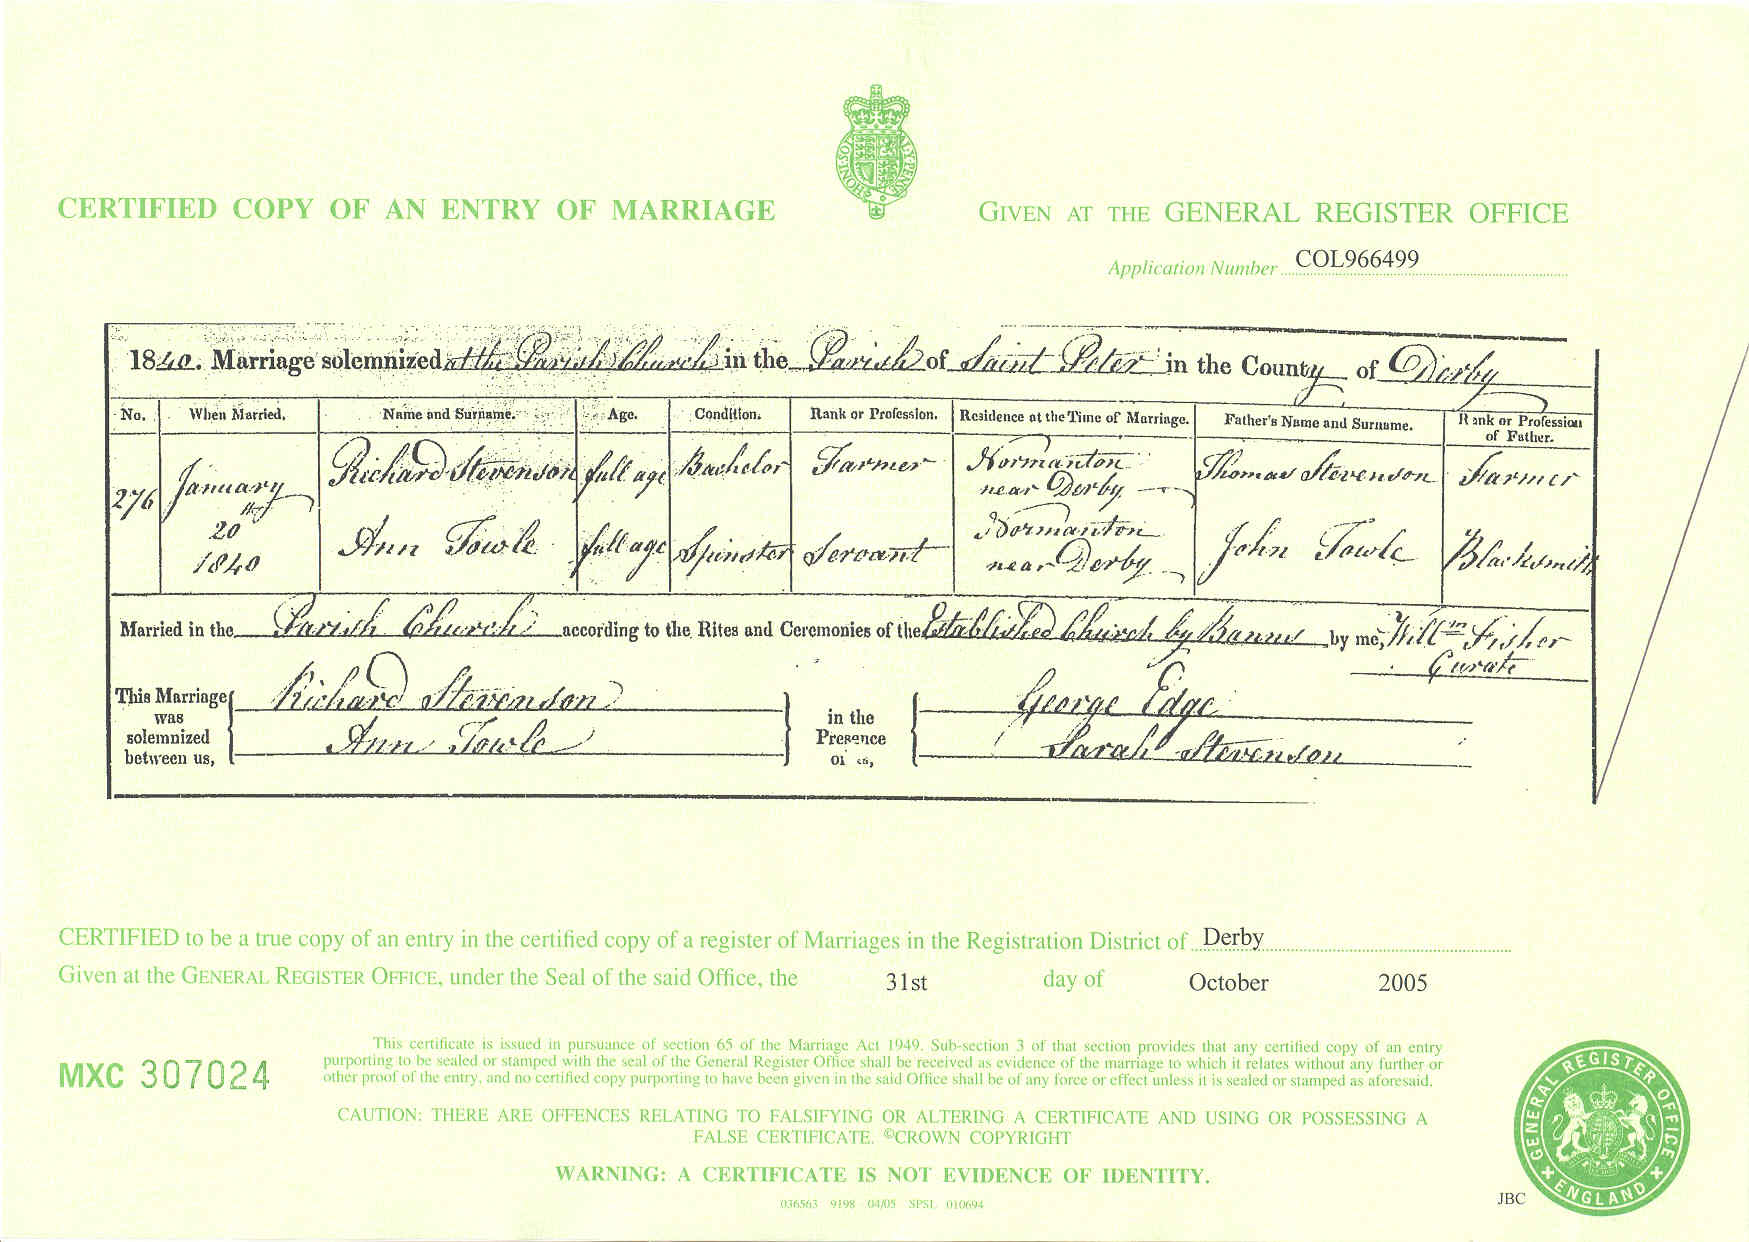 CERTIFIED COPY OF AN ENTRY OF MARRIAGE
GIVEN AT THE GENERAL REGISTER OFFICE
Application Number COL966499
1840. Marriage solemnized at the Parish Church in the Parish of Saint Peter in the County of Derby
No. When Married. Name and Surname. Age. Condition. Rank or Profession. Residence at the Time of Marriage. Father's Name and Surname. Rank or Profession of Father.
276 January 20th 1840 Richard Stevenson full age Bachelor Farmer Normanton near Derby Thomas Stevenson Farmer
Ann Towle full age Spinster Servant Normanton near Derby John Towle Blacksmith
Married in the Parish Church according to the Rites and Ceremonies of the Established Church by Banns by me, Willm Fisher
Curate
This Marriage was solemnized between us, Richard Stevenson
Ann Towle
in the Presence of us, George Edge
Sarah Stevenson
CERTIFIED to be a true copy of an entry in the certified copy of a register of Marriages in the Registration District of Derby
Given at the GENERAL REGISTER OFFICE, under the Seal of the said Office, the 31st day of October 2005
MXC 307024
This certificate is issued in pursuance of section 65 of the Marriage Act 1949. Sub-section 3 of that section provides that any certified copy of an entry
purporting to be sealed or stamped with the seal of the General Register Office shall be received as evidence of the marriage to which it relates without any further or
other proof of the entry, and no certified copy purporting to have been given in the said Office shall be of any force or effect unless it is sealed or stamped as aforesaid.
CAUTION: THERE ARE OFFENCES RELATING TO FALSIFYING OR ALTERING A CERTIFICATE AND USING OR POSSESSING A
FALSE CERTIFICATE. ©CROWN COPYRIGHT
WARNING: A CERTIFICATE IS NOT EVIDENCE OF IDENTITY.
036563 9198 04/05 SPSL 010694
JBC
GENERAL REGISTER OFFICE
ENGLAND